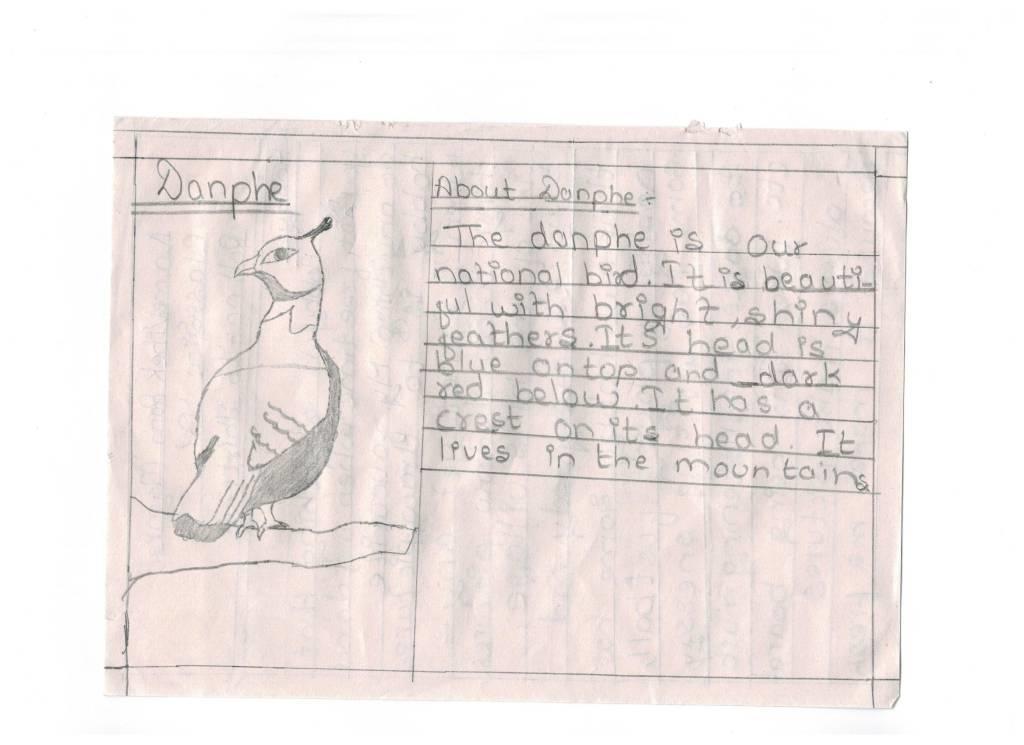 Danphe
About Danphe:-
The danphe is our
national bird. It is beauti-
ful with bright, shiny
feathers. Its head is
blue on top and dark
red below. It has a
crest on its head. It
lives in the mountains